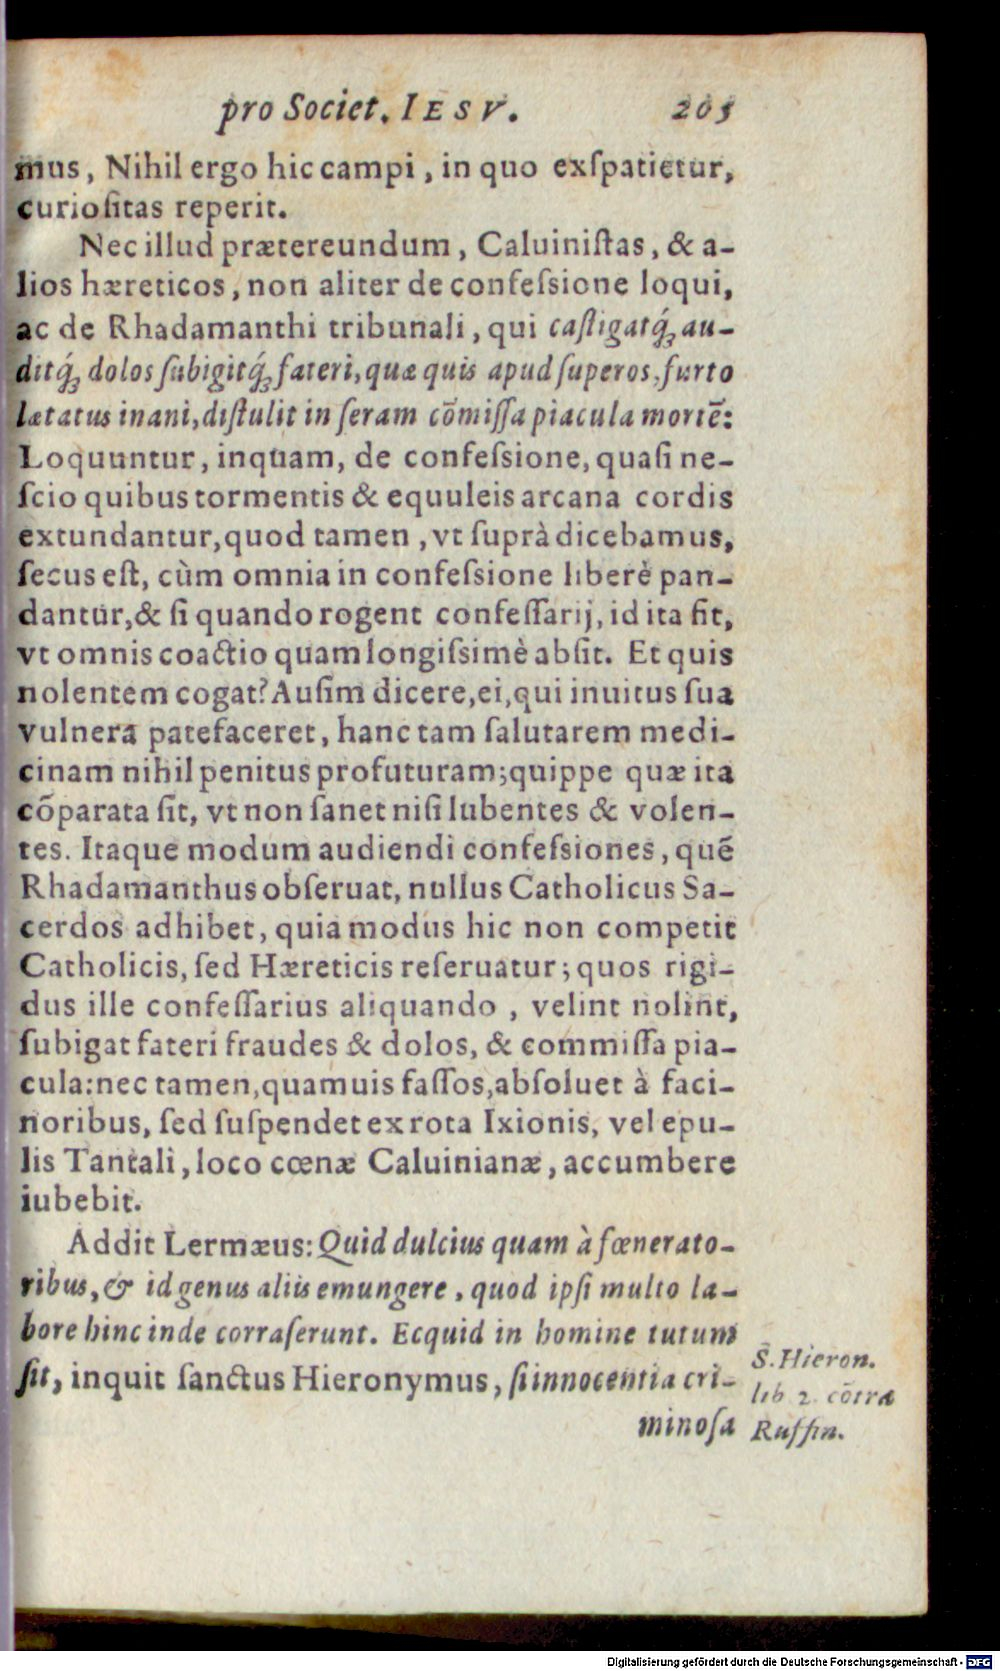 pro Societ. IESV. 205
mus, Nihil ergo hic campi, in quo exſpatietur,
curioſitas reperit.
Nec illud prætereundum, Caluiniſtas, & a-
lios hæreticos, non aliter de confeſsione loqui,
ac de Rhadamanthi tribunali, qui caſtigatq́; au-
ditq́; dolos ſubigitq́; fateri, quæ quis apud ſuperos, furto
lætatus inani, diſtulit in ſeram cõmiſſa piacula mortẽ:
Loquuntur, inquam, de confeſsione, quaſi ne-
ſcio quibus tormentis & equuleis arcana cordis
extundantur, quod tamen, vt ſuprà dicebamus,
ſecus eſt, cùm omnia in confeſsione liberè pan-
dantur, & ſi quando rogent confeſſarij, id ita fit,
vt omnis coactio quam longiſsimè abſit. Et quis
nolentem cogat? Auſim dicere, ei, qui inuitus ſua
vulnera patefaceret, hanc tam ſalutarem medi-
cinam nihil penitus profuturam; quippe quæ ita
cõparata ſit, vt non ſanet niſi lubentes & volen-
tes. Itaque modum audiendi confeſsiones, quẽ
Rhadamanthus obſeruat, nullus Catholicus Sa-
cerdos adhibet, quia modus hic non competit
Catholicis, ſed Hæreticis reſeruatur; quos rigi-
dus ille confeſſarius aliquando, velint nolint,
ſubigat fateri fraudes & dolos, & commiſſa pia-
cula: nec tamen, quamuis faſſos, abſoluet à faci-
noribus, ſed ſuſpendet ex rota Ixionis, vel epu-
lis Tantali, loco cœnæ Caluinianæ, accumbere
iubebit.
Addit Lermæus: Quid dulcius quam à fœnerato-
ribus, & id genus aliis emungere, quod ipſi multo la-
bore hinc inde corraſerunt. Ecquid in homine tutum
ſit, inquit ſanctus Hieronymus, ſi innocentia cri-
minoſa
S. Hieron.
lib 2. cõtra
Ruffin.
Digitalisierung gefördert durch die Deutsche Forschungsgemeinschaft - DFG